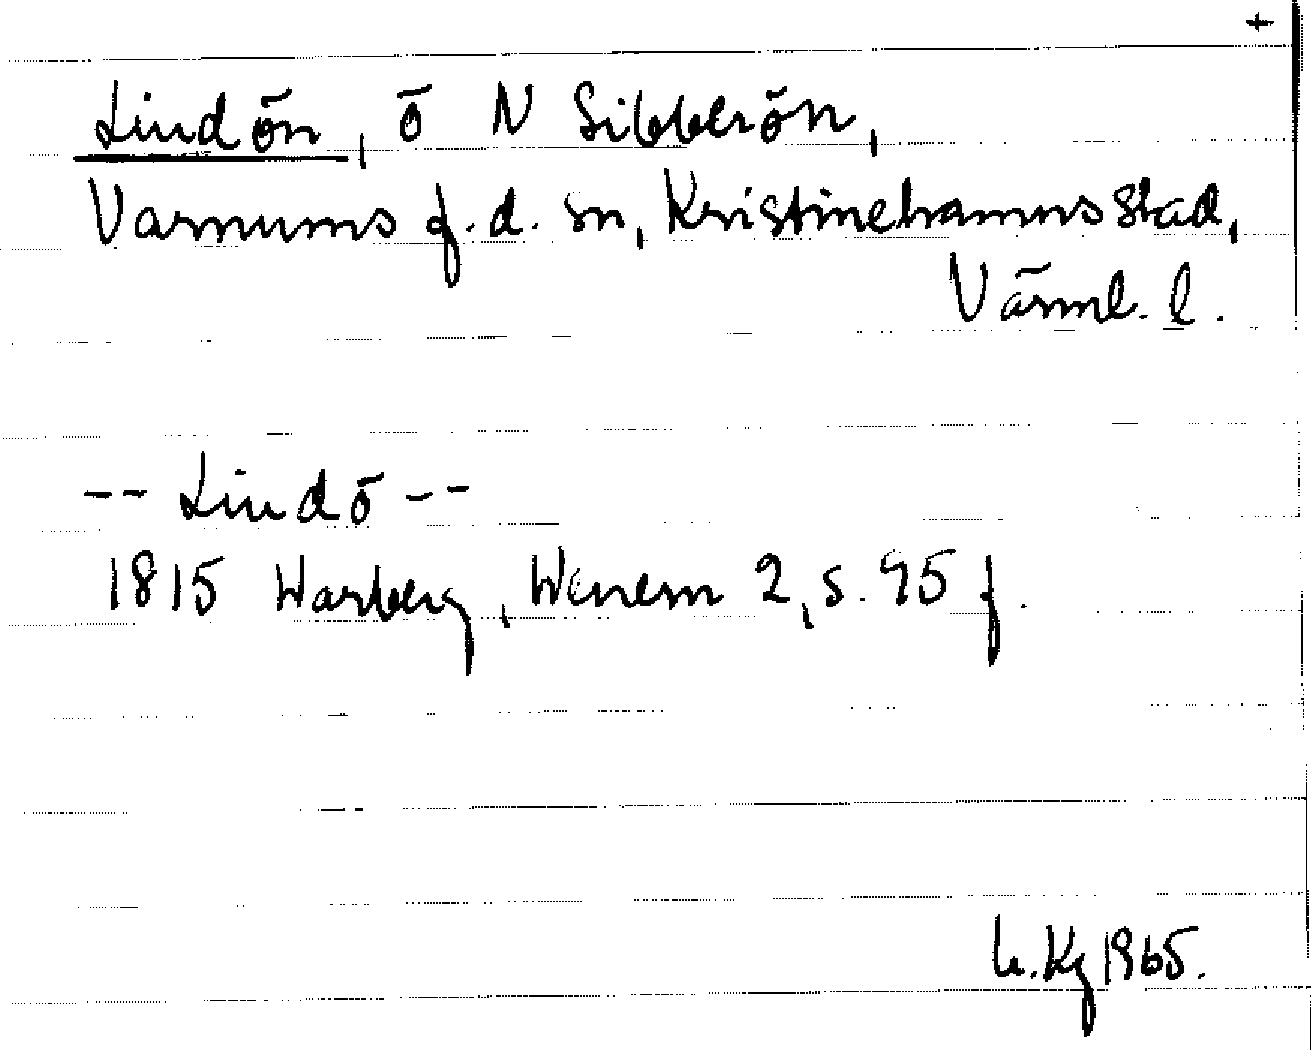 +
Lindön, ö N Sibberön,
Varnums f.d. sn, Kristinehamns stad,
Värml. l.
-- Lindö --
1815 Warberg, Wenern 2, s. 95 f.
Kg 1965.